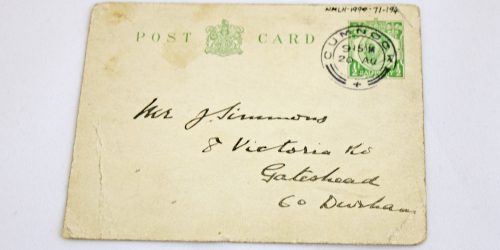 NMLH·1990·71·194
POST CARD
CUMNOCK
915 M
20 AU
Mr J. Simmons
8 Victoria Rd
Gateshead
Co Durham